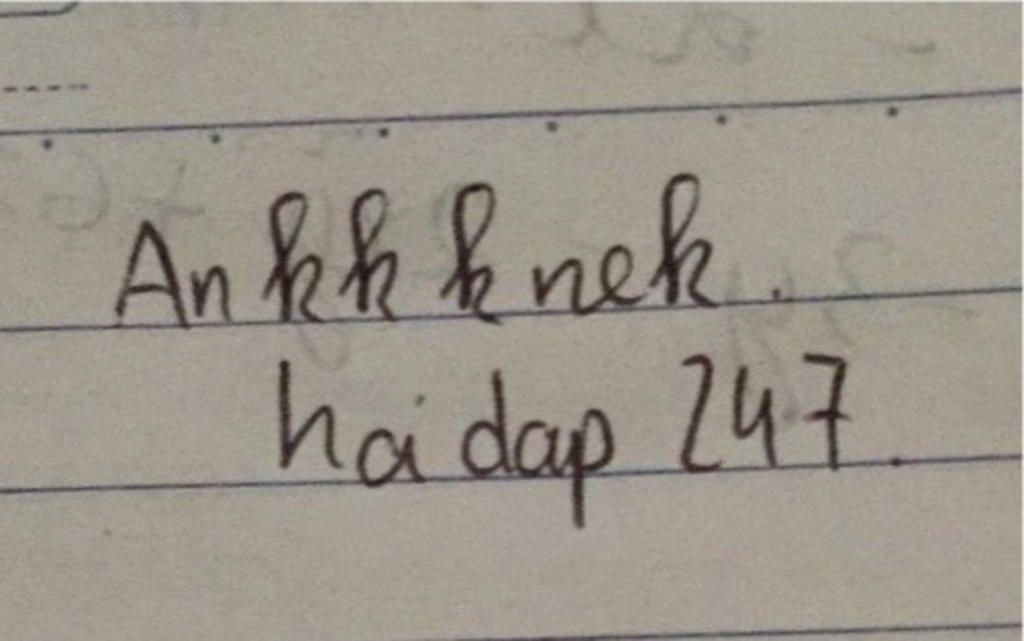 Ankkknek.
hoidap 247.